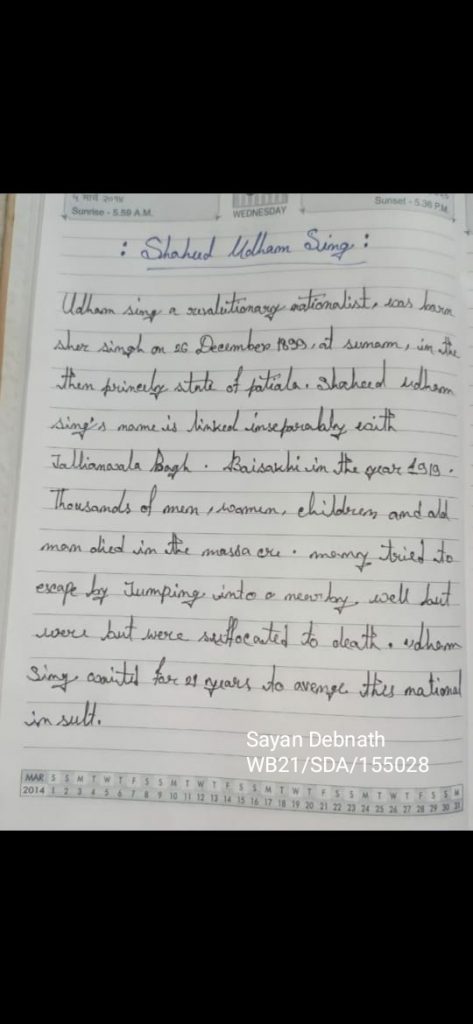 ५ मार्च २०१४
Sunrise - 5.59 A.M.
WEDNESDAY
Sunset - 5.36 P.M.
: Shaheed Udham Sing :
Udham sing a revalutionary nationalist, was barn
sher singh on 26 December 1899, at sunam, in the
then princely state of patiala. Shaheed udham
sing's name is linked inseparably with
Jallianwala Bagh. Baisakhi in the year 1919.
Thousands of men, women, children and old
man died in the massa cre. many tried to
escape by Jumping into a near by well but
were but were suffocated to death. udham
Sing waited for 21 years to avenge this national
in sult.
Sayan Debnath
WB21/SDA/155028
MAR S S M T W T F S S M T W T F S S M T W T F S S M T W T F S S M
2014 1 2 3 4 5 6 7 8 9 10 11 12 13 14 15 16 17 18 19 20 21 22 23 24 25 26 27 28 29 30 31